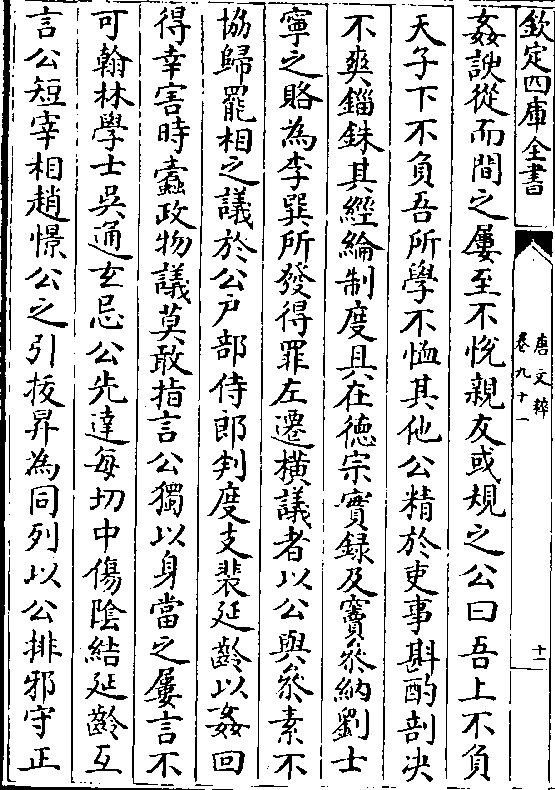 欽定四庫全書
唐文粹
卷九十一
十一
姦諛從而間之屢至不悅親友或規之公曰吾上不負
天子下不負吾所學不恤其他公精於吏事斟酌剖決
不爽錙銖其經綸制度具在德宗實錄及竇叅納劉士
寧之賂為李巽所發得罪左遷橫議者以公與叅素不
協歸罷相之議於公户部侍郎判度支裴延齡以姦回
得幸害時蠹政物議莫敢指言公獨以身當之屢言不
可翰林學士吳通𤣥忌公先達每切中傷陰結延齡互
言公短宰相趙憬公之引㧞昇為同列以公排邪守正